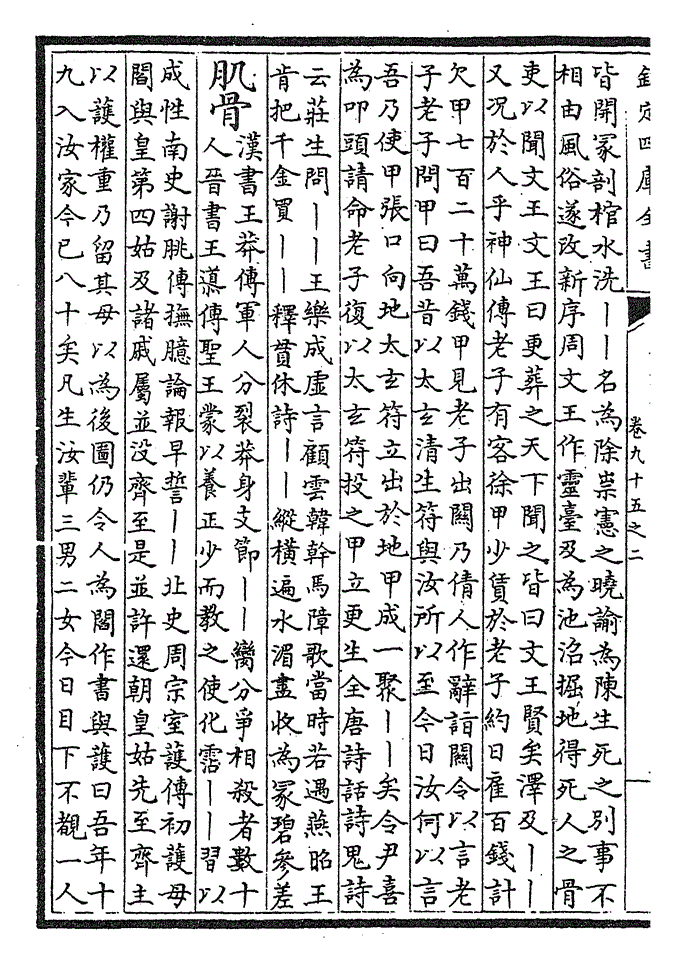 欽定四庫全書
卷九十五之二
皆開冢剖棺水洗丨丨名為除祟憲之曉諭為陳生死之别事不
相由風俗遂改新序周文王作靈臺及為池沼掘地得死人之骨
吏以聞文王文王曰更葬之天下聞之皆曰文王賢矣澤及丨丨
又况於人乎神仙傳老子有客徐甲少賃於老子約日雇百錢計
欠甲七百二十萬錢甲見老子出關乃倩人作辭詣關令以言老
子老子問甲曰吾昔以太玄清生符與汝所以至今日汝何以言
吾乃使甲張口向地太玄符立出於地甲成一聚丨丨矣令尹喜
為叩頭請命老子復以太玄符投之甲立更生全唐詩話詩鬼詩
云莊生問丨丨王樂成虚言顧雲韓幹馬障歌當時若遇燕昭王
肯把千金買丨丨釋貫休詩丨丨縱橫遍水湄盡收為冢碧參差
肌骨漢書王莽傳軍人分裂莽身支節丨丨臠分爭相殺者數十
人晉書王遜傳聖王蒙以養正少而教之使化霑丨丨習以
成性南史謝朓傳撫臆論報早誓丨丨北史周宗室護傳初護母
閻與皇第四姑及諸戚屬並没齊至是並許還朝皇姑先至齊主
以護權重乃留其母以為後圖仍令人為閻作書與護曰吾年十
九入汝家今已八十矣凡生汝輩三男二女今日目下不覩一人